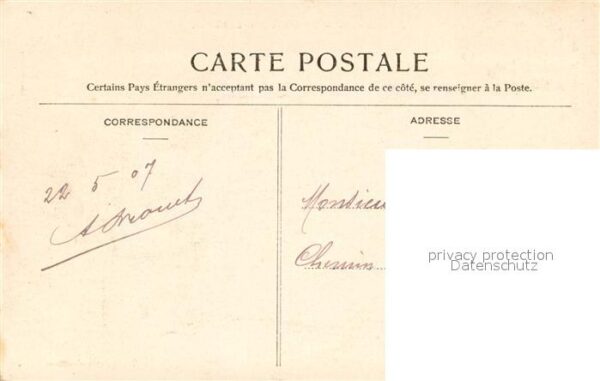 CARTE POSTALE
Certains Pays Étrangers n'acceptant pas la Correspondance de ce côté, se renseigner à la Poste.
CORRESPONDANCE
ADRESSE
22 5 07
Monsieu
Chemin
privacy protection
Datenschutz